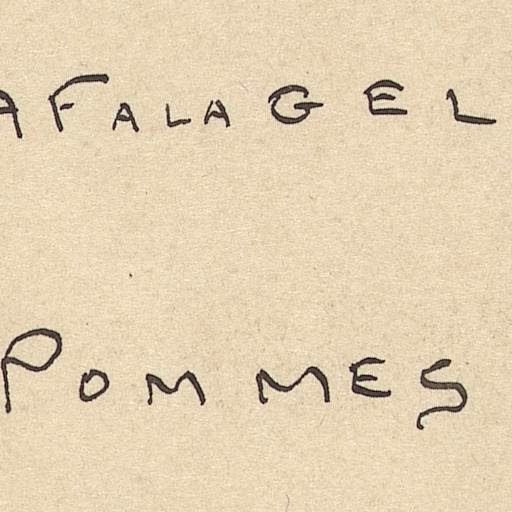 AFALAGEL
POMMES